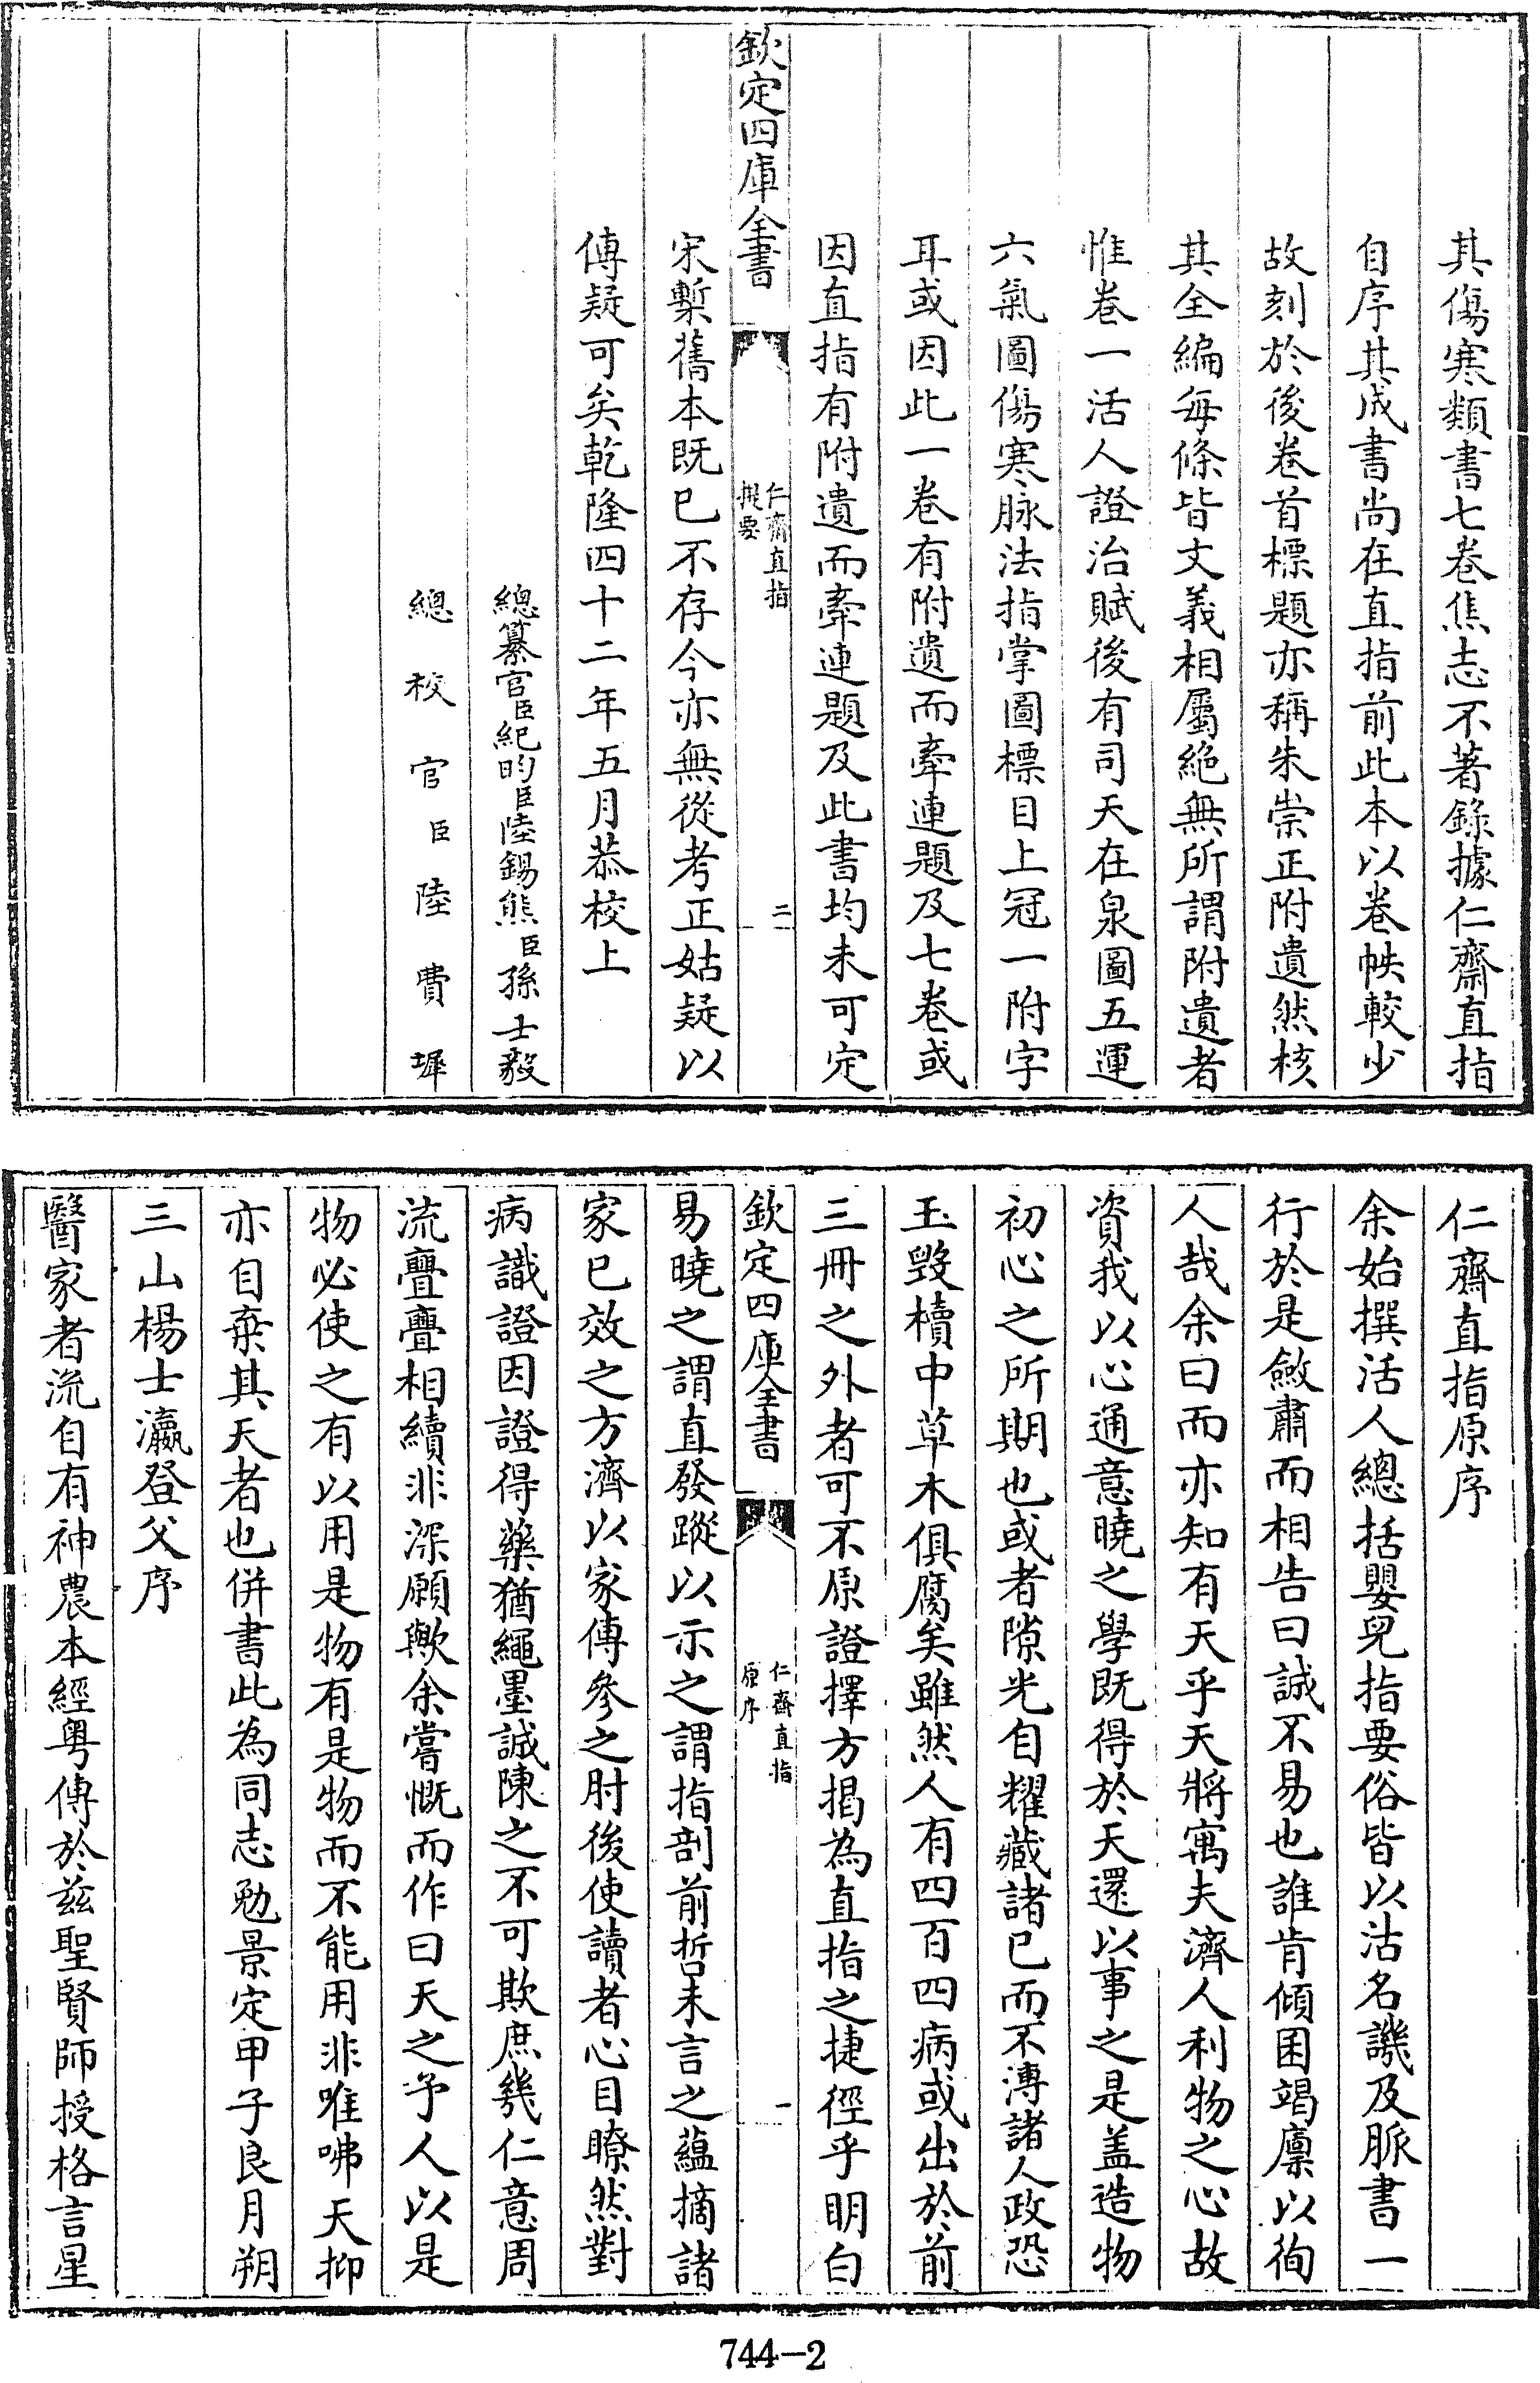 其傷寒類書七卷焦志不著錄據仁齋直指
自序其成書尚在直指前此本以卷帙較少
故刻於後卷首標題亦稱朱崇正附遺然核
其全編每條皆文義相屬絶無所謂附遺者
惟卷一活人證治賦後有司天在泉圖五運
六氣圖傷寒脉法指掌圖標目上冠一附字
耳或因此一卷有附遺而牽連題及七卷或
因直指有附遺而牽連題及此書均未可定
欽定四庫全書
仁齋直指
提要
二
宋槧舊本既已不存今亦無從考正姑疑以
傳疑可矣乾隆四十二年五月恭校上
總纂官臣紀昀臣陸錫熊臣孫士毅
總校官臣陸費墀
仁齋直指原序
余始撰活人總括嬰兒指要俗皆以沽名譏及脈書一
行於是斂肅而相告曰誠不易也誰肯傾囷竭廩以徇
人哉余曰而亦知有天乎天將寓夫濟人利物之心故
資我以心通意曉之學既得於天還以事之是盖造物
初心之所期也或者隙光自耀藏諸已而不溥諸人政恐
玉毁櫝中草木俱腐矣雖然人有四百四病或出於前
三冊之外者可不原證擇方揭為直指之捷徑乎明白
欽定四庫全書
仁齋直指
原序
一
易曉之謂直發蹤以示之謂指剖前哲未言之蘊摘諸
家已效之方濟以家傳參之肘後使讀者心目瞭然對
病識證因證得藥猶繩墨誠陳之不可欺庶幾仁意周
流亹亹相續非深願歟余嘗慨而作曰天之予人以是
物必使之有以用是物有是物而不能用非唯咈天抑
亦自棄其天者也併書此為同志勉景定甲子良月朔
三山楊士瀛登父序
醫家者流自有神農本經粤傳於兹聖賢師授格言星
744-2